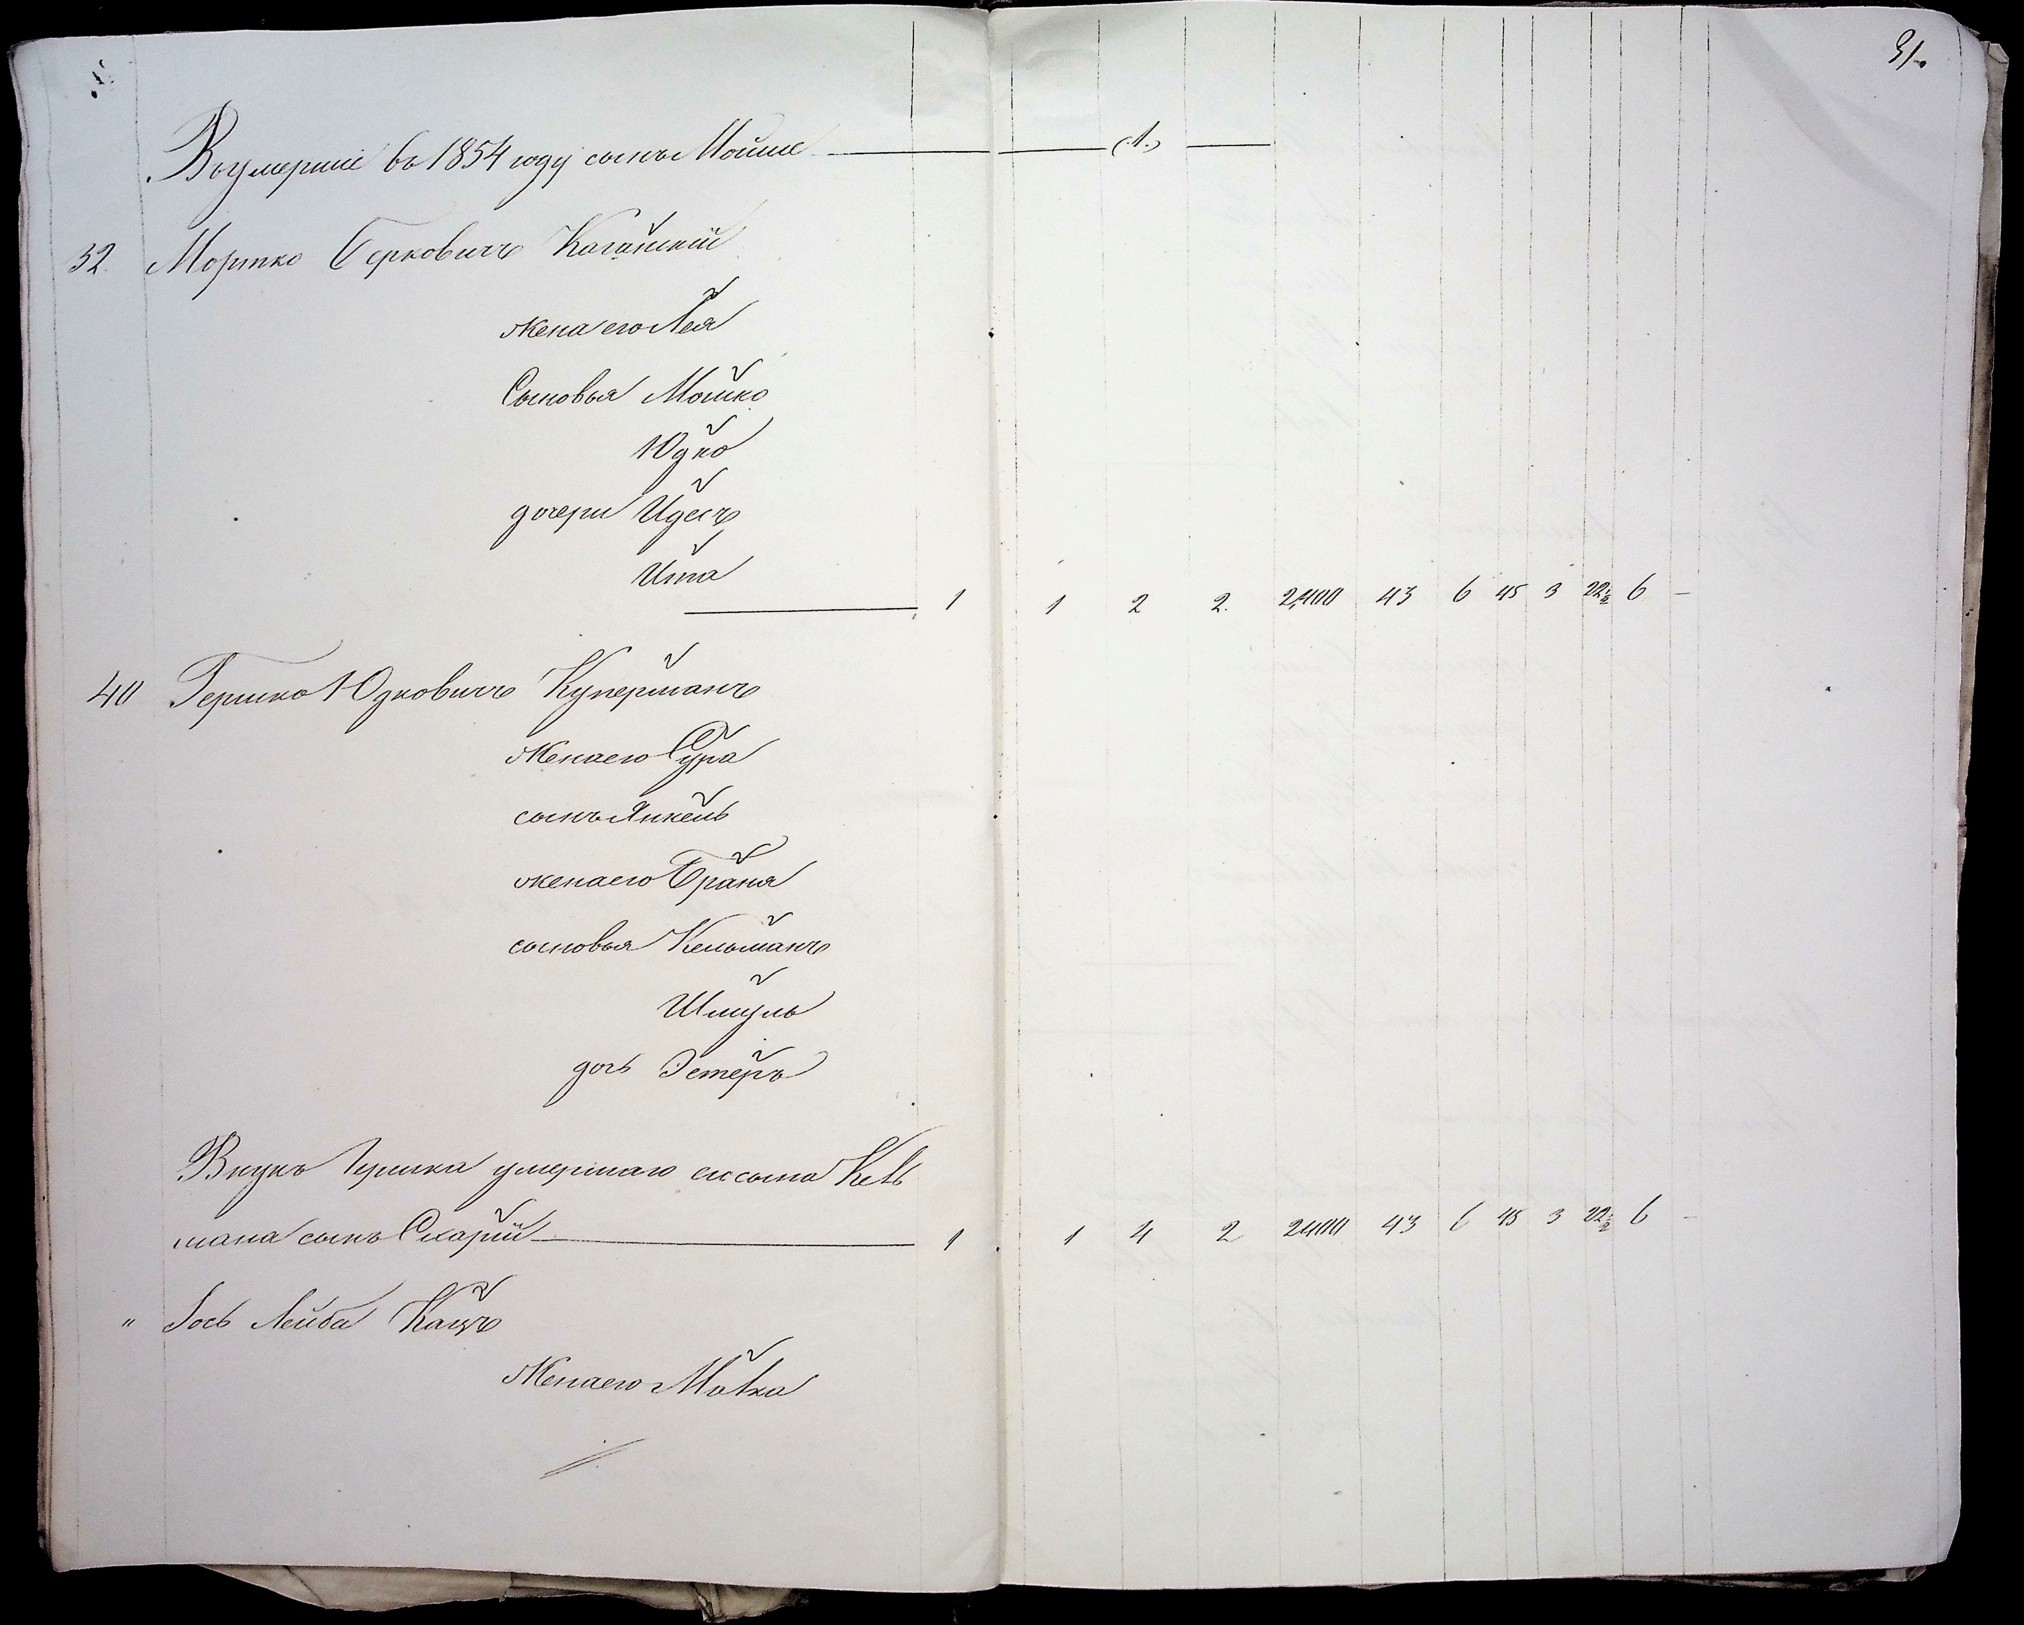 31.
Въ умершіе въ 1854 году сынъ Мойше (1.)
32. Мортко Берковичъ Каганскій
жена его Лея
Сыновья Мошко
Юдко
дочери Идесъ
Ита
1 1 2 2. 2,400 43 6 45 3 22½ 6 –
40 Гершко Юдковичъ Куперманъ
жена его Сура
сынъ Янкель
жена его Браня
сыновья Кельманъ
Шмуль
дочь Эстеръ
Внукъ Гершка умершаго сына Кель
мана сынъ Схарій 1 1 4 2 2400 43 6 45 3 22½ 6 –
" Іось Лейба Кацъ
Жена его Малка